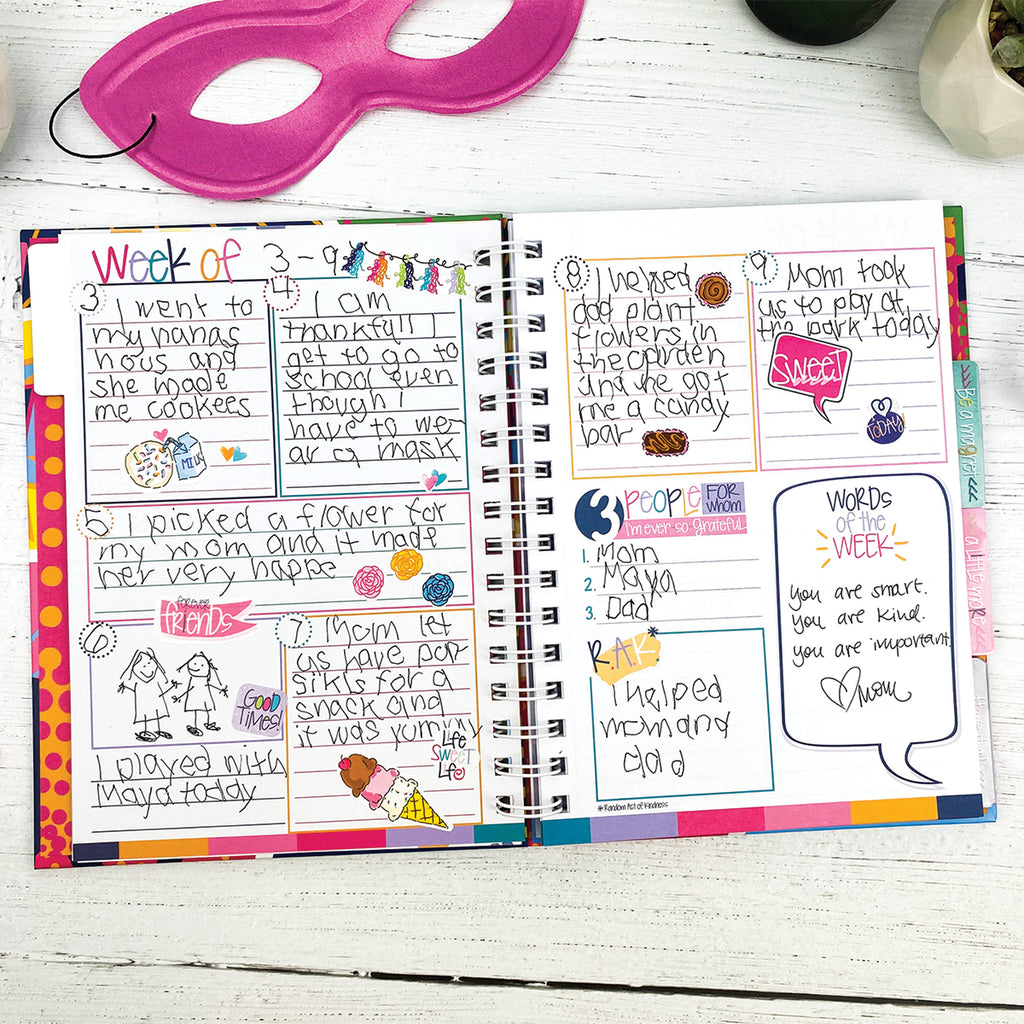 Week of 3-9
3
I went to
my nanas
hous and
she made
me cookees
MILK
4
I am
thankfull I
get to go to
school even
though I
have to wer
ar a mask
5
I picked a flower for
my mom and it made
her very happe
6
forever
friends
GOOD
TIMES!
I played with
Maya today
7
Mom let
us have pop
sikls for a
snack and
it was yummy
Life
SWEET
Life
8
I helped
dad plant
flowers in
the garden
and he got
me a candy
bar
9
Mom took
us to play at
the park today
SWEET
TODAY
3 PEOPLE FOR whom
I'm ever so grateful
1. Mom
2. Maya
3. Dad
R.A.K*
I helped
mom and
dad
*Random Act of Kindness
WORDS
of the
WEEK
you are smart.
you are kind.
you are important.
♡mom
Be a magnet
a little more